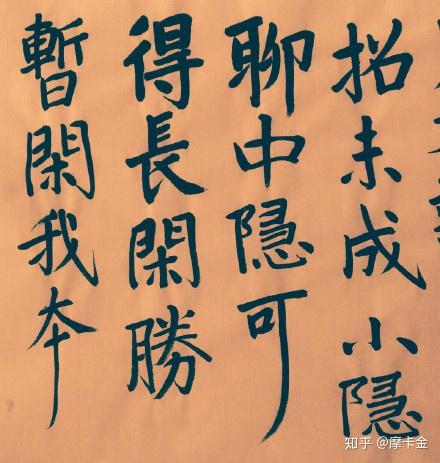 招未成小隱
聊中隱可
得長閑勝
暫閑我本
知乎 @摩卡金